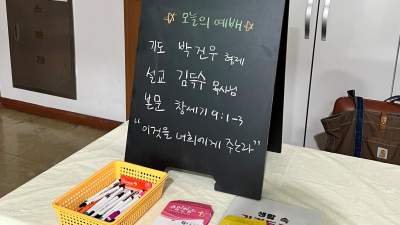 오늘의 예배
기도 박건우 형제
설교 김득수 목사님
본문 창세기 9:1-3
"이것을 너희에게 주노라"
생활 속